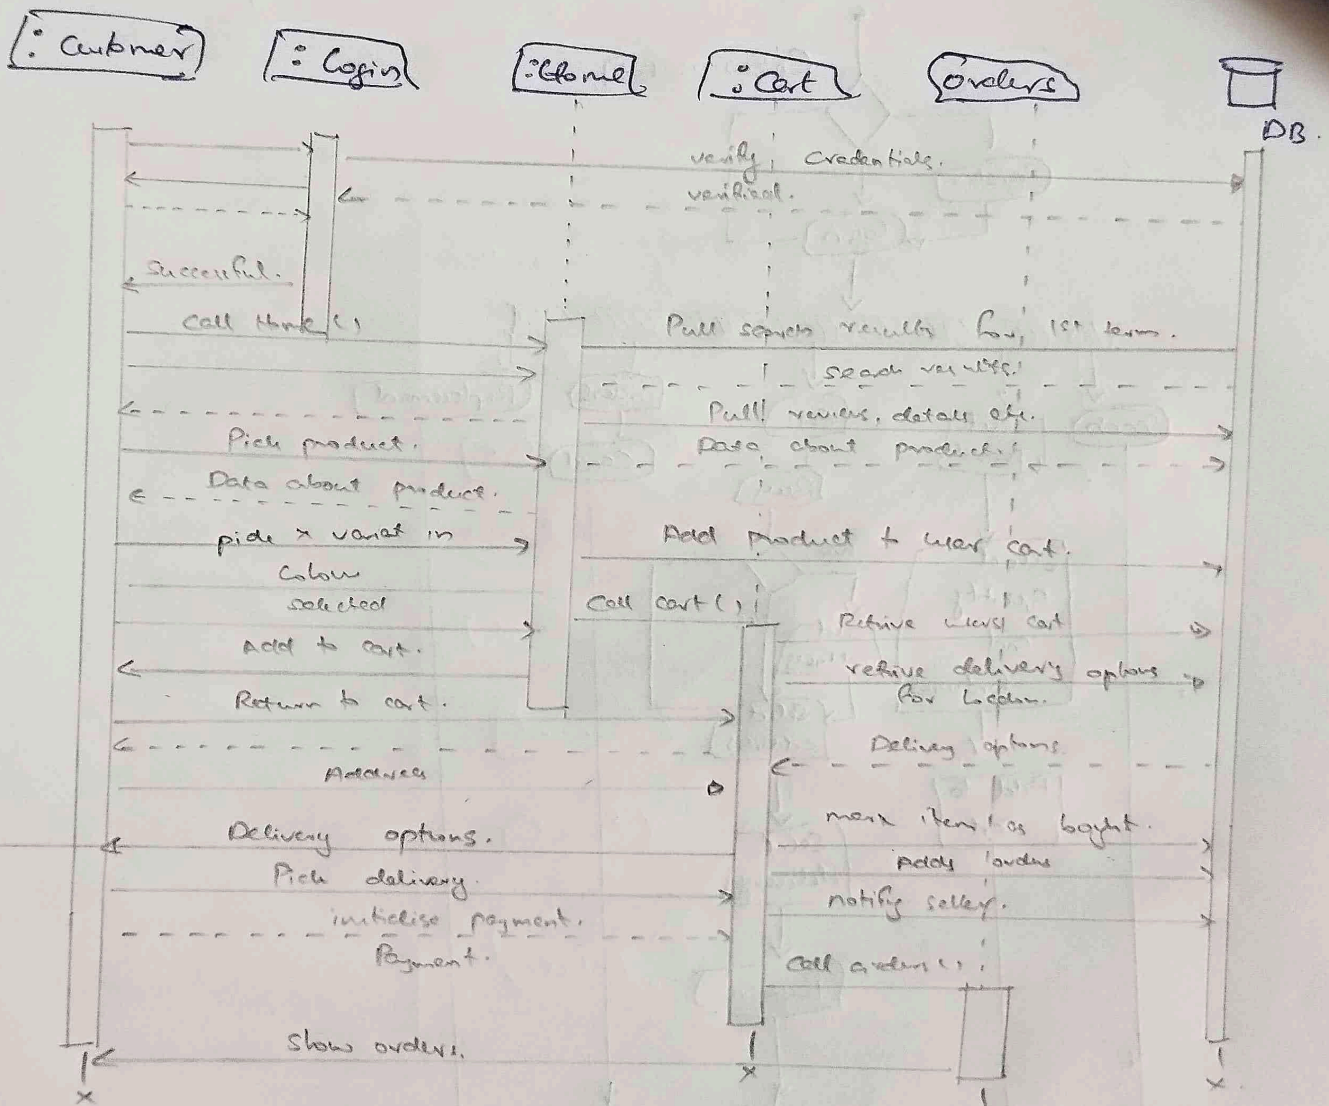 : Customer
: Login
:Home
: Cart
orders
DB.
verify credentials.
verified.
Successful.
Call Home ()
Pull search results for 1st term.
search results.
Pull reviews, details etc.
Pick product.
Data about product.
Data about product.
pick x variat in
Colour
selected
Add product to user cart.
Call cart ()
Retrive users cart
Add to cart.
retrive delivery options
for Location.
Return to cart.
Delivery options
Address
mark item as boght.
Delivery options.
Adds orders
Pick delivery.
notify seller.
initialise payment.
Payment.
Call orders ()
Show orders.